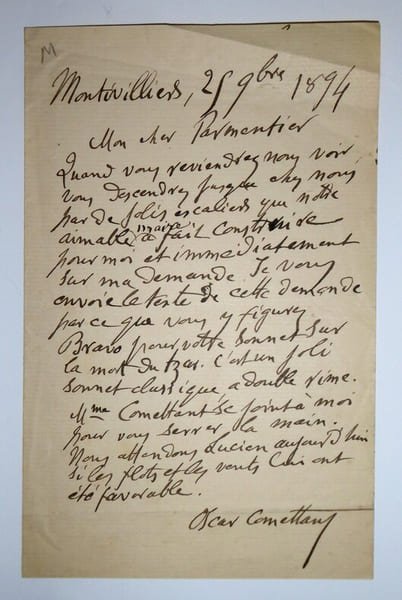 M
Montivilliers, 25 9bre 1894
Mon cher Parmentier
Quand vous reviendrez nous voir,
vous descendrez jusque chez nous
par de jolis escaliers que notre
aimable maire a fait construire
pour moi et immédiatement
sur ma demande. Je vous
envoie le texte de cette demande
parce que vous y figurez.
Bravo pour votre sonnet sur
la mort du tzar. C'est un joli
sonnet classique, a double rime.
Mme Comettant se joint à moi
pour vous serrer la main.
Nous attendons Lucien aujourd'hui
si les flots et les vents lui ont
été favorable.
Oscar Comettant